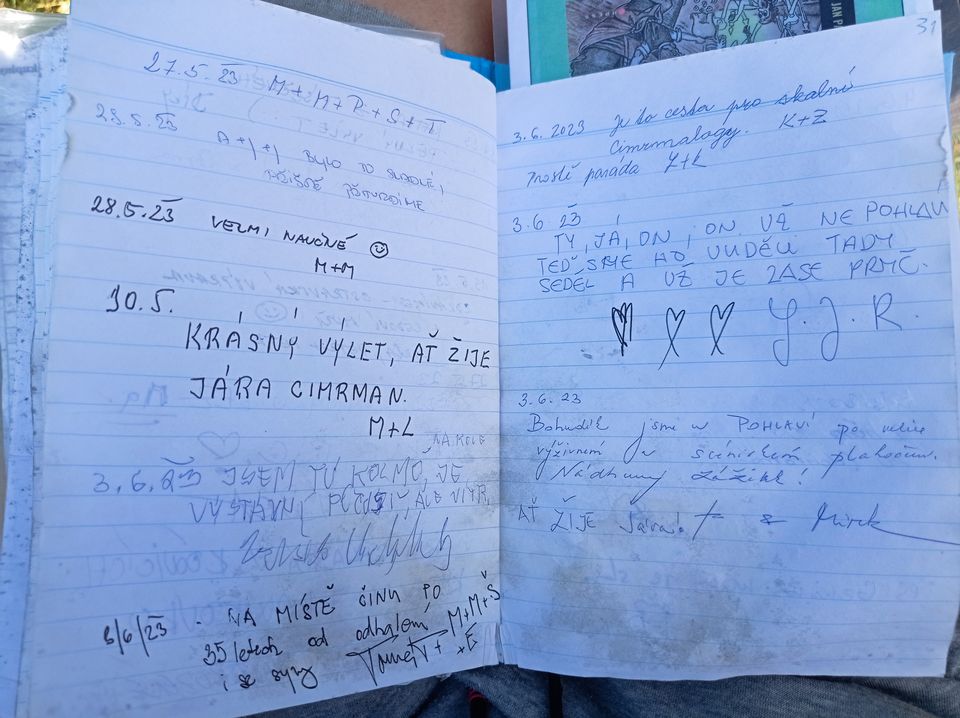 27.5.23 M + M + R + S + T
28.5.23
A + J + J BYLO TO SLADKÉ,
PŘÍŠTĚ
28.5.23 VELMI NAUČNÉ ☺
M+M
30.5.
KRÁSNÝ VÝLET, AŤ ŽIJE
JÁRA CIMRMAN.
M+L
NA KOLE
3.6.23 JSEM TU KOLMO, JE
ALE VÍTR,
3/6/23 - NA MÍSTĚ ČINU PO
35 letech od odhalení M+M+Š
i se syny Tomáš T + + E
JAN P
31
3.6.2023 Je to cesta pro skalní
Cimrmalogy. K+Z
Prostě paráda
3.6 23
TY, JÁ, ON, ON UŽ NE POHLAVÍ
TEĎ SME HO VIDĚLI TADY
SEDĚL A UŽ JE ZASE PRYČ.
Y. J. R.
3.6.23
Bohudík jsme v POHLAVÍ po velice
výživném
Nádherný zážitek!
AŤ ŽIJE Jára! & Mirek